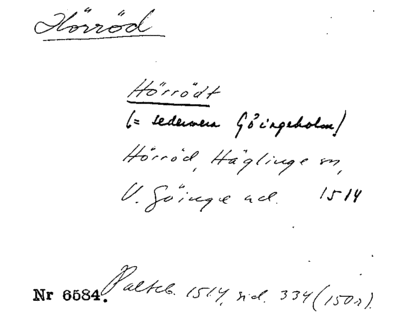 Hörröd
Hörrödt
(= sedermera Göingeholm)
Hörröd, Häglinge sn,
V. Göinge hd. 1514
Nr 6584. Palteb. 1514, sid. 334 (150r).